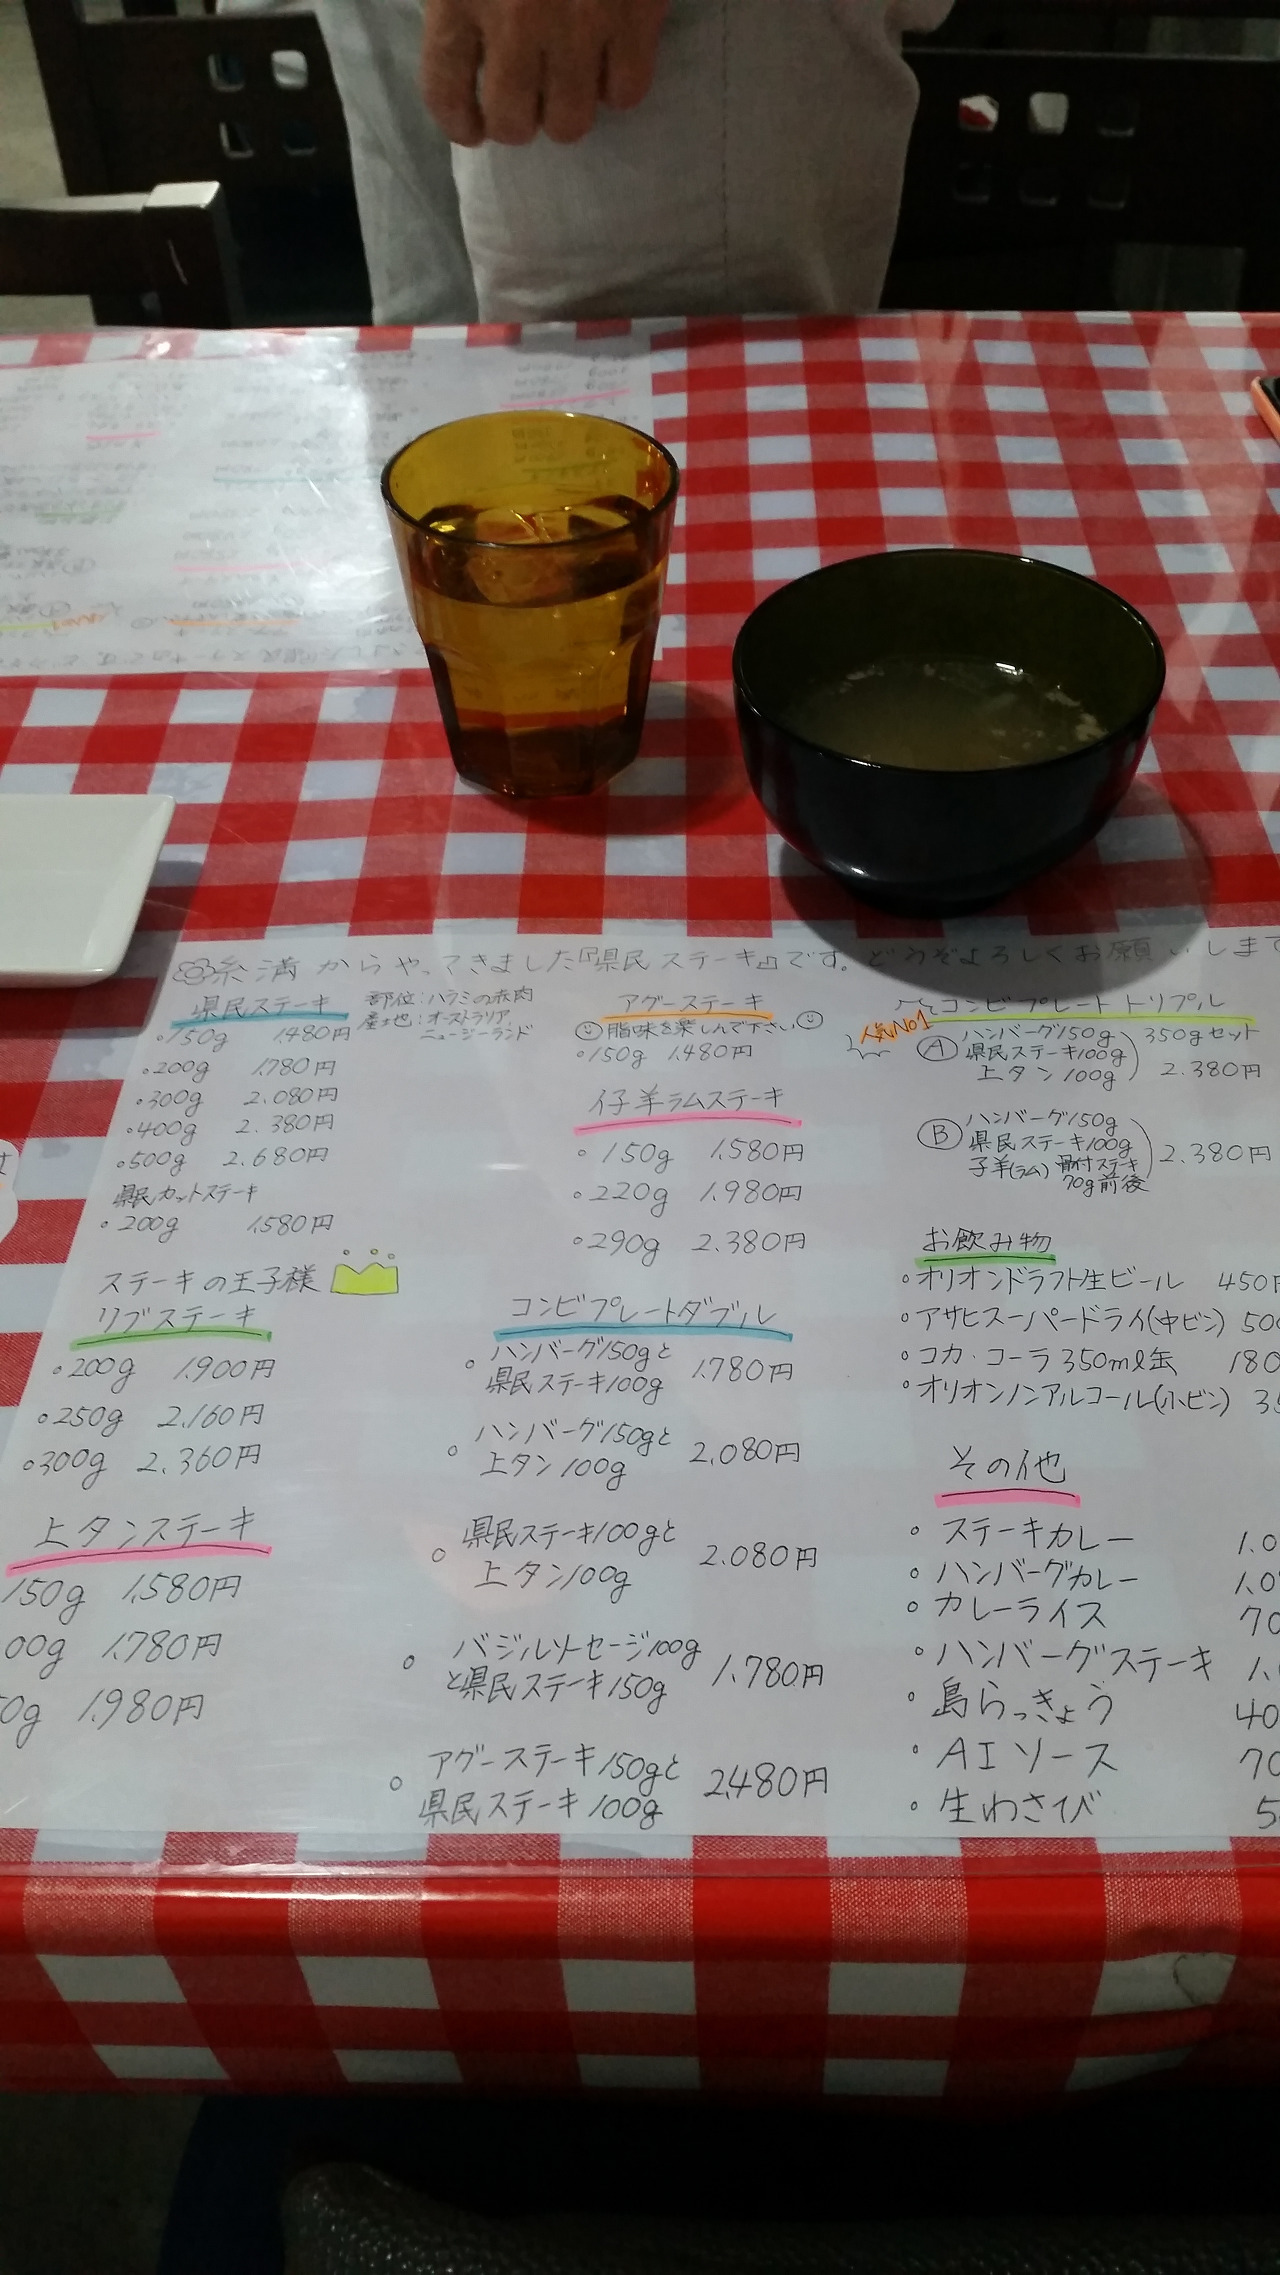 糸満からやってきました『県民ステーキ』です。どうぞよろしくお願いします
県民ステーキ
部位:ハラミの赤肉
産地:オーストラリア
ニュージーランド
・150g 1.480円
・200g 1.780円
・300g 2.080円
・400g 2.380円
・500g 2.680円
県民カットステーキ
・200g 1.580円
ステーキの王子様
リブステーキ
・200g 1.900円
・250g 2.160円
・300g 2.360円
上タンステーキ
150g 1.580円
00g 1.780円
0g 1.980円
アグーステーキ
脂味を楽しんで下さい
・150g 1.480円
仔羊ラムステーキ
・150g 1.580円
・220g 1.980円
・290g 2.380円
コンビプレートダブル
・ハンバーグ150gと
県民ステーキ100g 1.780円
・ハンバーグ150gと
上タン100g 2.080円
・県民ステーキ100gと
上タン100g 2.080円
・バジルソーセージ100g
と県民ステーキ150g 1.780円
・アグーステーキ150gと
県民ステーキ100g 2.480円
コンビプレートトリプル
人気No1
Ⓐ ハンバーグ150g 350gセット
県民ステーキ100g
上タン100g 2.380円
Ⓑ ハンバーグ150g
県民ステーキ100g 2.380円
子羊(ラム)骨付ステーキ
70g前後
お飲み物
・オリオンドラフト生ビール 450円
・アサヒスーパードライ(中ビン) 50
・コカ・コーラ350ml缶 180
・オリオンノンアルコール(小ビン) 3
その他
・ステーキカレー 1.0
・ハンバーグカレー 1.0
・カレーライス 70
・ハンバーグステーキ 1.
・島らっきょう 40
・AIソース 70
・生わさび 5